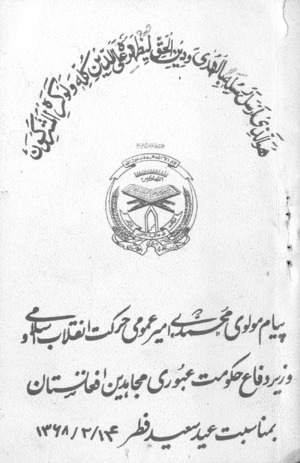 هوالذی ارسل رسوله بالهدی و دین الحق لیظهره علی الدین کله ولو کره المشرکون
الله اکبر
پیام مولوی محمدی امیر عمومی حرکت انقلاب اسلامی و
وزیر دفاع حکومت عبوری مجاهدین افغانستان
بمناسبت عید سعید فطر ۱۳۶۸/۲/۱۴